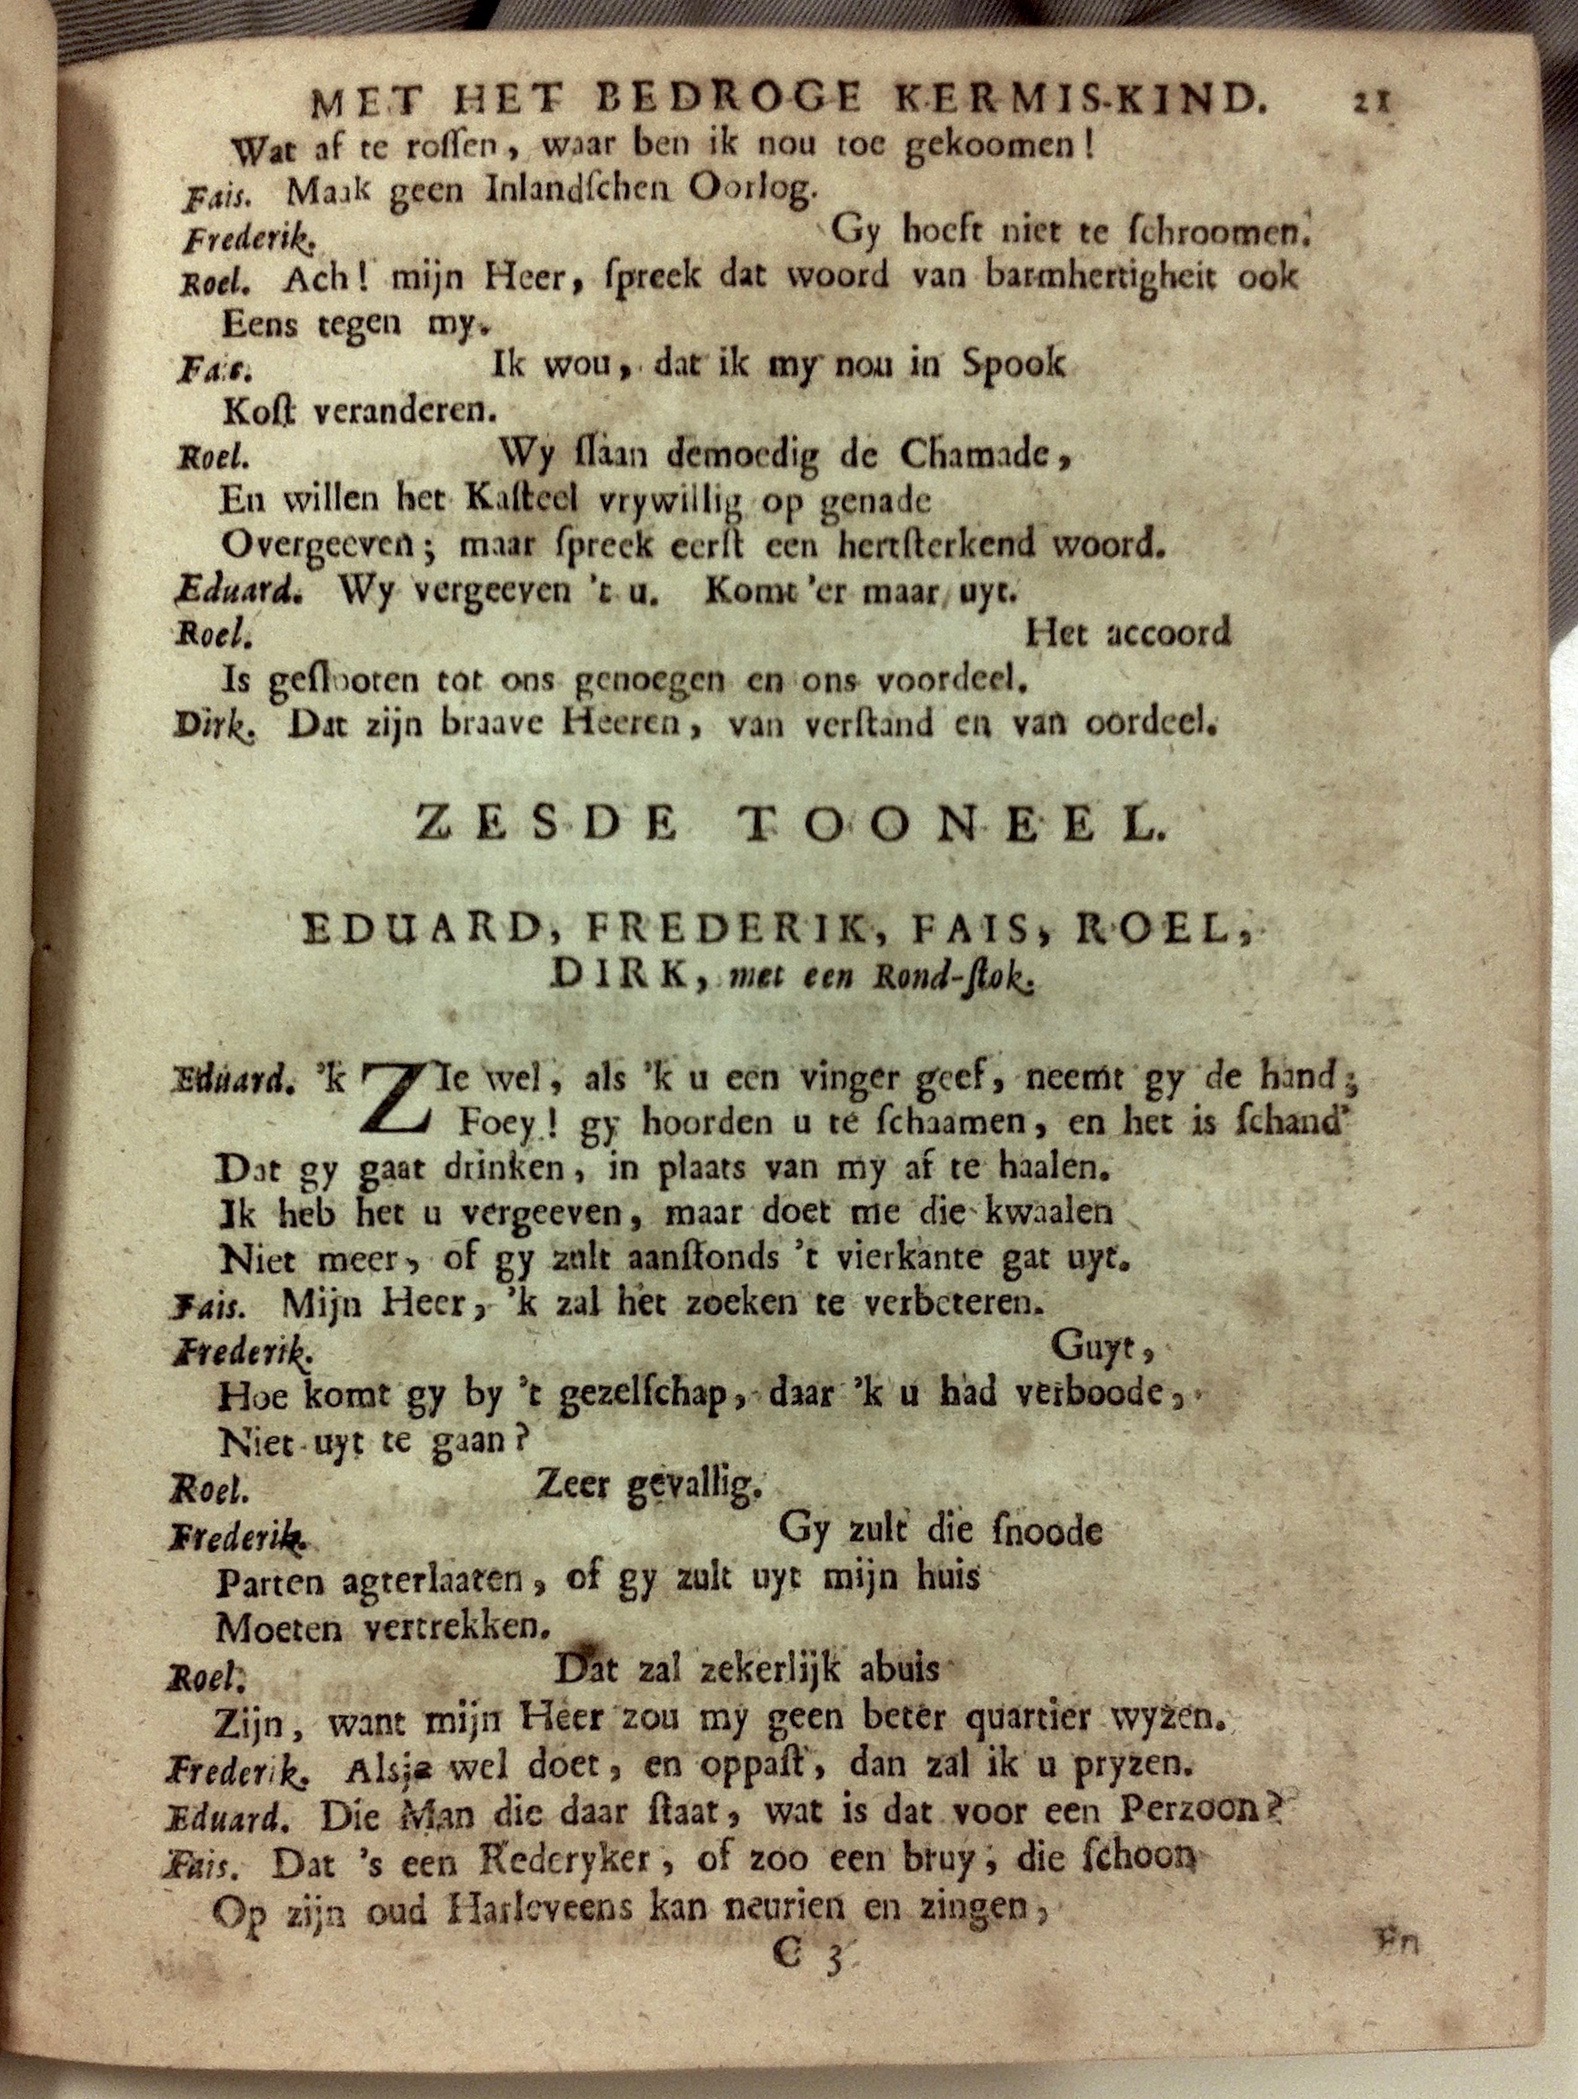 MET HET BEDROGE KERMIS-KIND. 21
Wat af te roſſen, waar ben ik nou toe gekoomen!
Fais. Maak geen Inlandſchen Oorlog.
Frederik. Gy hoeft niet te ſchroomen.
Roel. Ach! mijn Heer, ſpreek dat woord van barmhertigheit ook
Eens tegen my.
Fais. Ik wou, dat ik my nou in Spook
Koſt veranderen.
Roel. Wy ſlaan demoedig de Chamade,
En willen het Kaſteel vrywillig op genade
Overgeeven; maar ſpreek eerſt een hertſterkend woord.
Eduard. Wy vergeeven 't u. Komt 'er maar uyt.
Roel. Het accoord
Is geſlooten tot ons genoegen en ons voordeel.
Dirk. Dat zijn braave Heeren, van verſtand en van oordeel.
ZESDE TOONEEL.
EDUARD, FREDERIK, FAIS, ROEL,
DIRK, met een Rond-ſtok.
Eduard. 'k ZIe wel, als 'k u een vinger geef, neemt gy de hand;
Foey! gy hoorden u te ſchaamen, en het is ſchand'
Dat gy gaat drinken, in plaats van my af te haalen.
Ik heb het u vergeeven, maar doet me die kwaalen
Niet meer, of gy zult aanſtonds 't vierkante gat uyt.
Fais. Mijn Heer, 'k zal het zoeken te verbeteren.
Frederik. Guyt,
Hoe komt gy by 't gezelſchap, daar 'k u had verboode,
Niet uyt te gaan?
Roel. Zeer gevallig.
Frederik. Gy zult die ſnoode
Parten agterlaaten, of gy zult uyt mijn huis
Moeten vertrekken.
Roel. Dat zal zekerlijk abuis
Zijn, want mijn Heer zou my geen beter quartier wyzen.
Frederik. Alsje wel doet, en oppaſt, dan zal ik u pryzen.
Eduard. Die Man die daar ſtaat, wat is dat voor een Perzoon?
Fais. Dat 's een Rederyker, of zoo een bruy, die ſchoon
Op zijn oud Harleveens kan neurien en zingen,
C 3
En